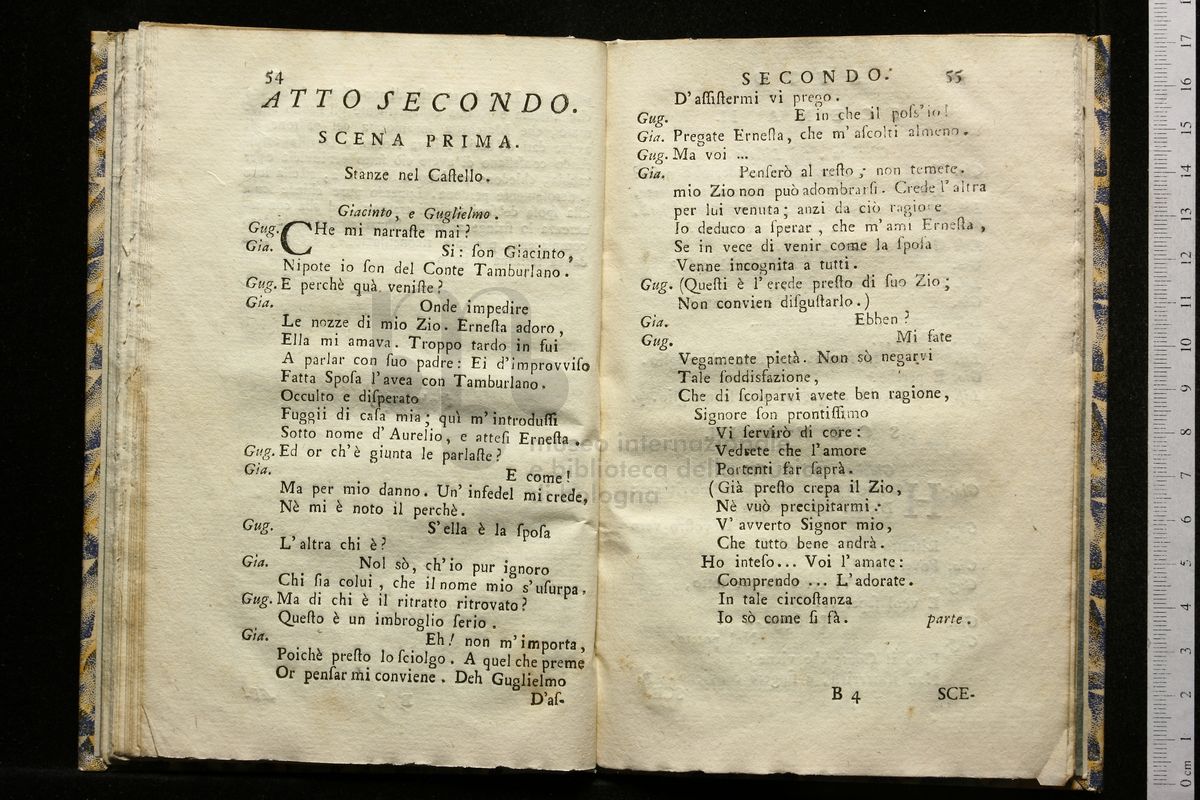 54
ATTO SECONDO.
SCENA PRIMA.
Stanze nel Caſtello.
Giacinto, e Guglielmo.
Gug. CHe mi narraſte mai?
Gia. Si: ſon Giacinto,
Nipote io ſon del Conte Tamburlano.
Gug. E perchè quà veniſte?
Gia. Onde impedire
Le nozze di mio Zio. Erneſta adoro,
Ella mi amava. Troppo tardo in fui
A parlar con ſuo padre: Ei d'improvviſo
Fatta Spoſa l'avea con Tamburlano.
Occulto e diſperato
Fuggii di caſa mia; quì m'introduſſi
Sotto nome d'Aurelio, e atteſi Erneſta.
Gug. Ed or ch'è giunta le parlaſte?
Gia. E come!
Ma per mio danno. Un' infedel mi crede,
Nè mi è noto il perchè.
Gug. S'ella è la ſpoſa
L'altra chi è?
Gia. Nol sò, ch'io pur ignoro
Chi ſia colui, che il nome mio s'uſurpa.
Gug. Ma di chi è il ritratto ritrovato?
Queſto è un imbroglio ſerio.
Gia. Eh! non m'importa,
Poichè preſto lo ſciolgo. A quel che preme
Or penſar mi conviene. Deh Guglielmo
D'aſ-
SECONDO. 55
D'aſſiſtermi vi prego.
Gug. E in che il poſs'io!
Gia. Pregate Erneſta, che m'aſcolti almeno.
Gug. Ma voi ...
Gia. Penſerò al reſto; non temete.
mio Zio non può adombrarſi. Crede l'altra
per lui venuta; anzi da ciò ragione
Io deduco a ſperar, che m'ami Erneſta,
Se in vece di venir come la ſpoſa
Venne incognita a tutti.
Gug. (Queſti è l'erede preſto di ſuo Zio;
Non convien diſguſtarlo.)
Gia. Ebben?
Gug. Mi fate
Vegamente pietà. Non sò negarvi
Tale ſoddisfazione,
Che di ſcolparvi avete ben ragione,
Signore ſon prontiſſimo
Vi ſervirò di core:
Vedrete che l'amore
Portenti far ſaprà.
(Già preſto crepa il Zio,
Nè vuò precipitarmi.
V'avverto Signor mio,
Che tutto bene andrà.
Ho inteſo... Voi l'amate:
Comprendo ... L'adorate.
In tale circoſtanza
Io sò come ſi fà. parte.
B 4 SCE-
museo internazionale
e biblioteca della musica
bologna
0 cm 1 2 3 4 5 6 7 8 9 10 11 12 13 14 15 16 17